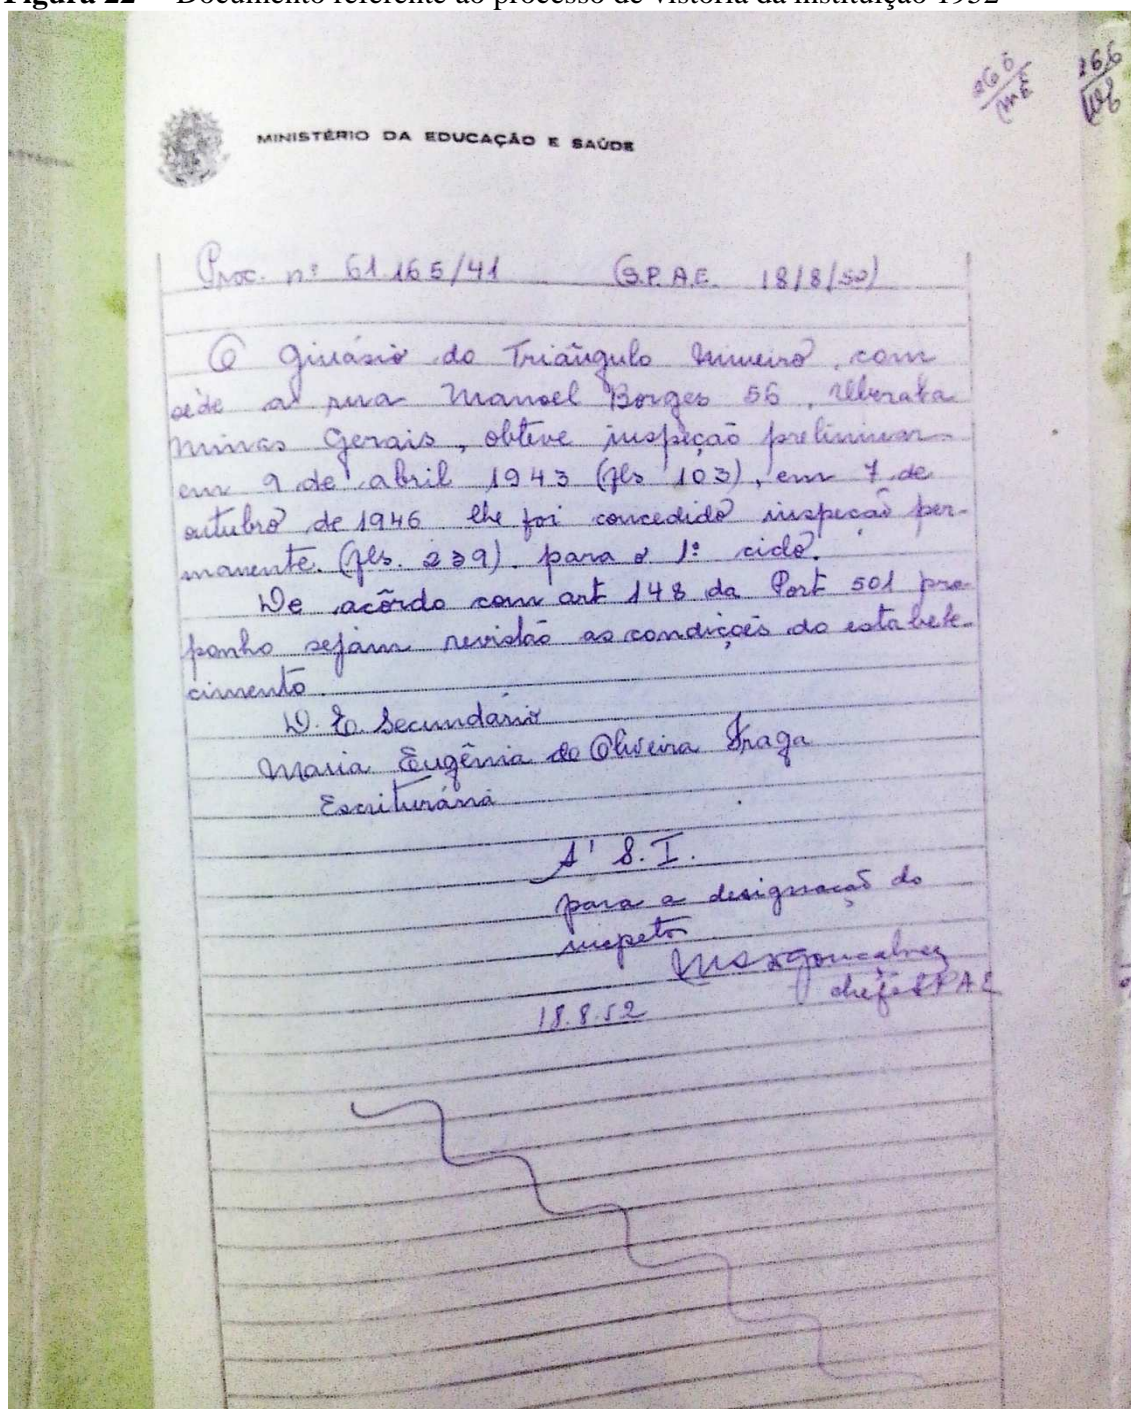 Figura 22 Documento referente ao processo de vistoria da instituição 1952
266
166
MINISTÉRIO DA EDUCAÇÃO E SAÚDE
Proc. nº 61.165/41 (S.P.A.E. 18/8/52)
O Ginásio do Triângulo Mineiro, com
séde a rua Manoel Borges 56, Uberaba
Minas Gerais, obteve inspeção preliminar
em 9 de abril 1943 (fls 103), em 7 de
outubro de 1946 lhe foi concedido inspeção per-
manente. (fls. 239). para o 1º ciclo.
De acôrdo com art 148 da Port 501 pro-
ponho sejam revistão as condições do estabele-
cimento.
D. E. Secundário
Maria Eugênia de Oliveira Fraga
Escriturária
A' S.I.
para a designação do
inspetor
chefe SPAE
18.8.52